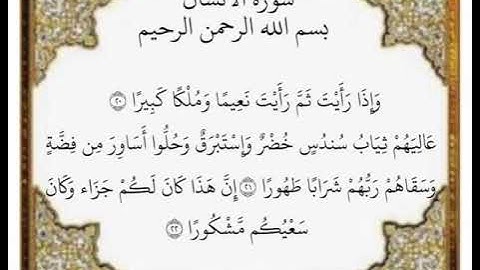 سورة الانسان
بسم الله الرحمن الرحيم
وَإِذَا رَأَيْتَ ثَمَّ رَأَيْتَ نَعِيمًا وَمُلْكًا كَبِيرًا ﴿٢٠﴾
عَالِيَهُمْ ثِيَابُ سُندُسٍ خُضْرٌ وَإِسْتَبْرَقٌ وَحُلُّوا أَسَاوِرَ مِن فِضَّةٍ
وَسَقَاهُمْ رَبُّهُمْ شَرَابًا طَهُورًا ﴿٢١﴾ إِنَّ هَذَا كَانَ لَكُمْ جَزَاء وَكَانَ
سَعْيُكُم مَّشْكُورًا ﴿٢٢﴾